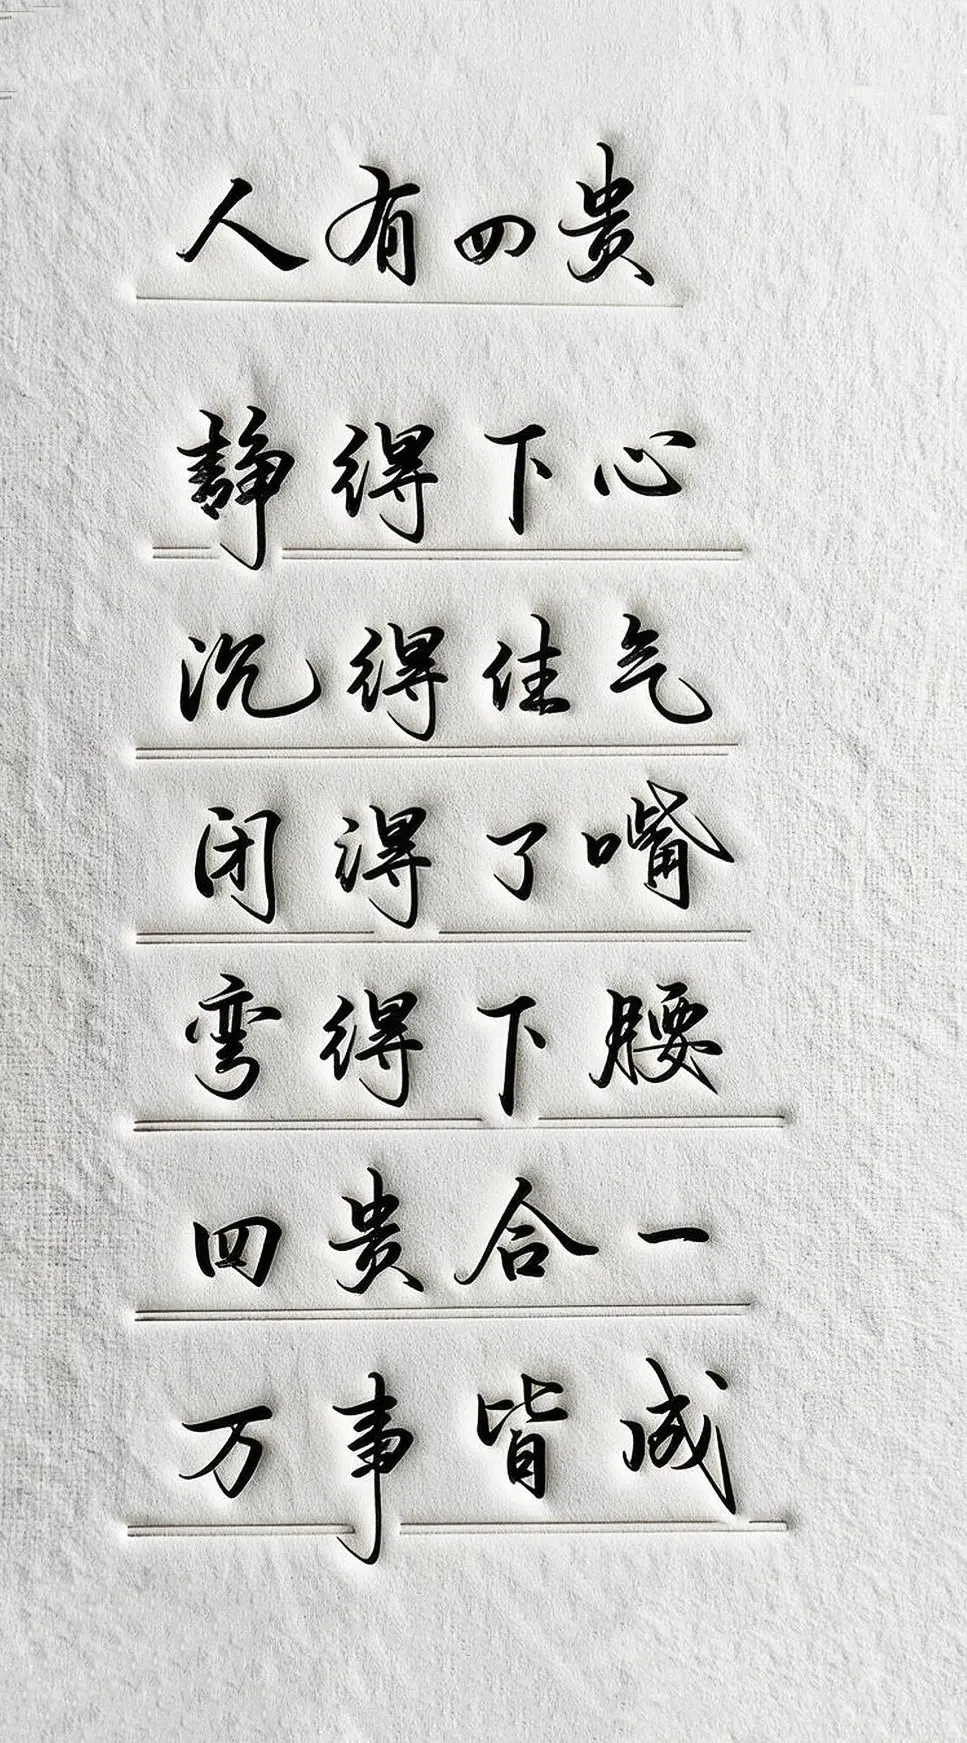 人有四贵
静得下心
沉得住气
闭得了嘴
弯得下腰
四贵合一
万事皆成